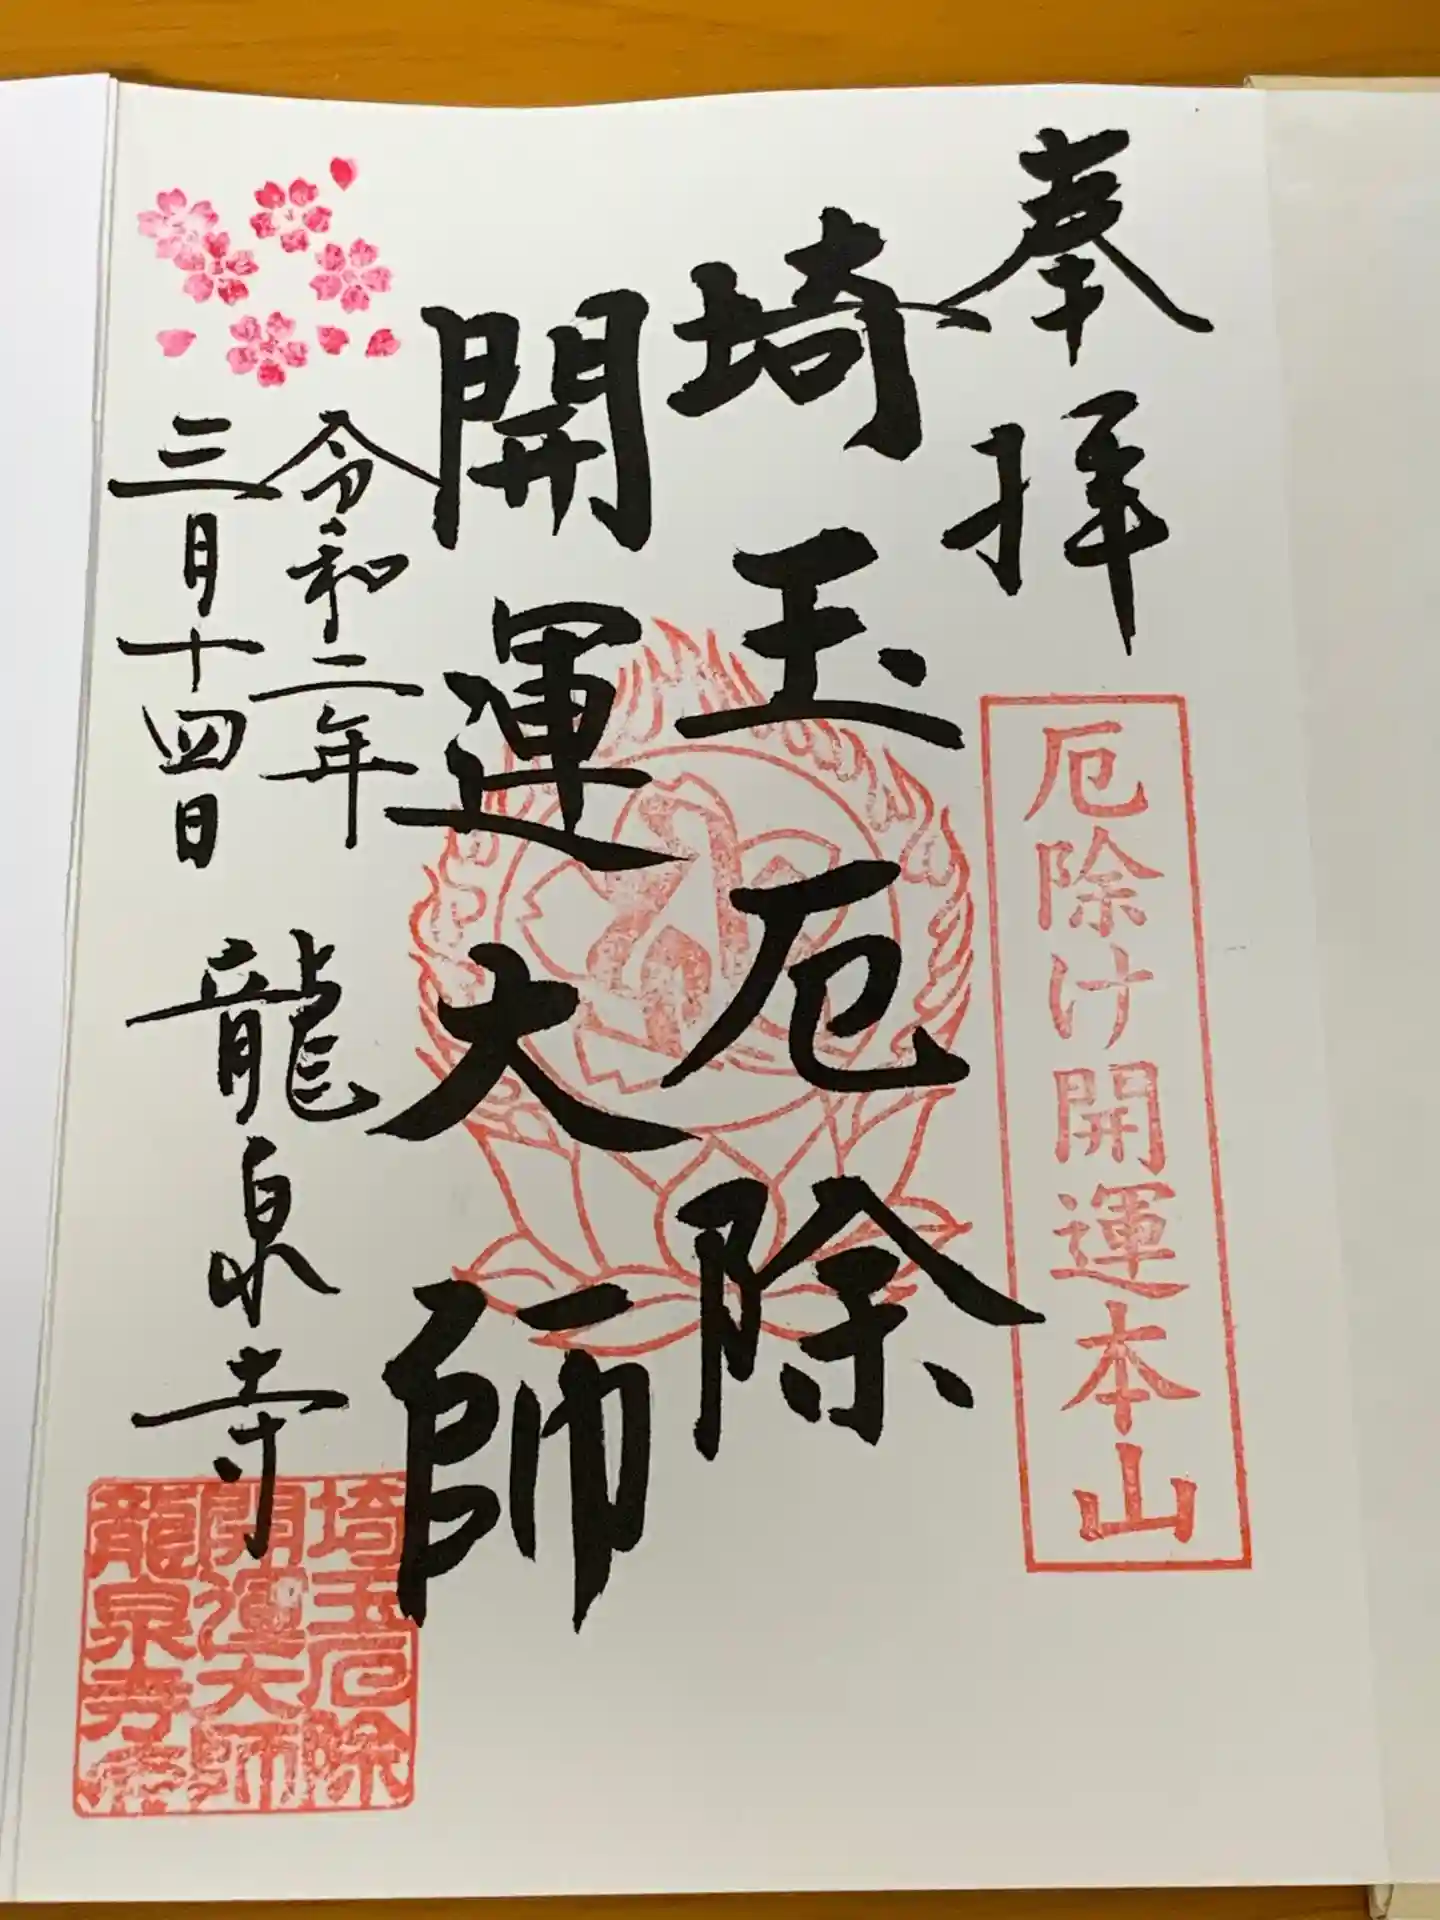 奉拝
厄除け開運本山
埼玉厄除
開運大師
令和二年
三月十四日
龍泉寺
埼玉厄除
開運大師
龍泉寺